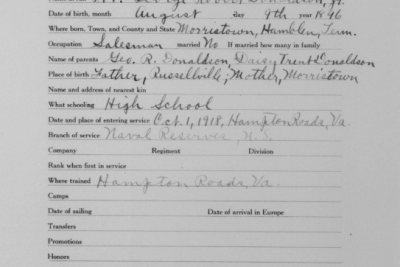 George Robert Donaldson, Jr.
Date of birth, month August day 9th year 1896
Where born, Town, and County and State Morristown, Hamblen, Tenn.
Occupation Salesman married No If married how many in family
Name of parents Geo. R. Donaldson, Daisy Trent Donaldson
Place of birth Father, Russellville; Mother, Morristown
Name and address of nearest kin
What schooling High School
Date and place of entering service Oct. 1, 1918, Hampton Roads, Va.
Branch of service Naval Reserves,
Company Regiment Division
Rank when first in service
Where trained Hampton Roads, Va.
Camps
Date of sailing Date of arrival in Europe
Transfers
Promotions
Honors